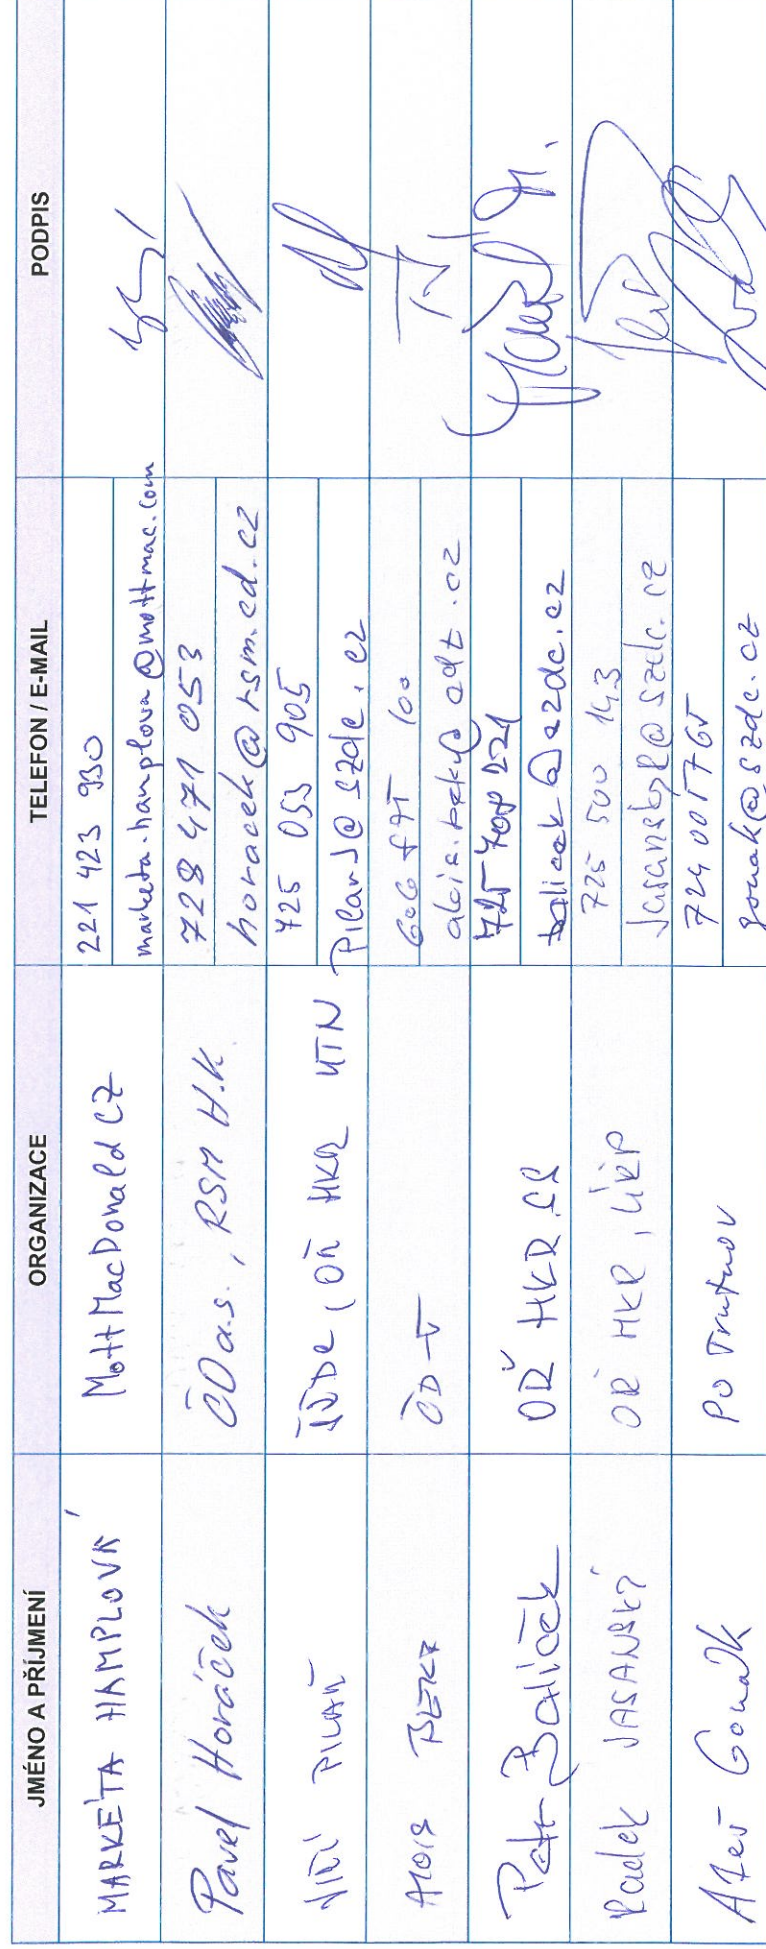 JMÉNO A PŘÍJMENÍ ORGANIZACE TELEFON / E-MAIL PODPIS
MARKÉTA HAMPLOVÁ Mott MacDonald CZ 221 423 930
marketa.hamplova@mottmac.com
Pavel Horáček ČD a.s., RSM H.K. 728 471 053
horacek@rsm.cd.cz
JIŘÍ PILAŘ SŽDC, OŘ HKR 725 053 905
PilarJ@szdc.cz
ALOIS ČD-T 100
Petr Baliček OŘ HKR 725 221
balicek@szdc.cz
Radek JASANSKÝ OŘ HKR, 725 500 143
Jasansky@szdc.cz
Gonák PO Trutnov 724 005 765
gonak@szdc.cz